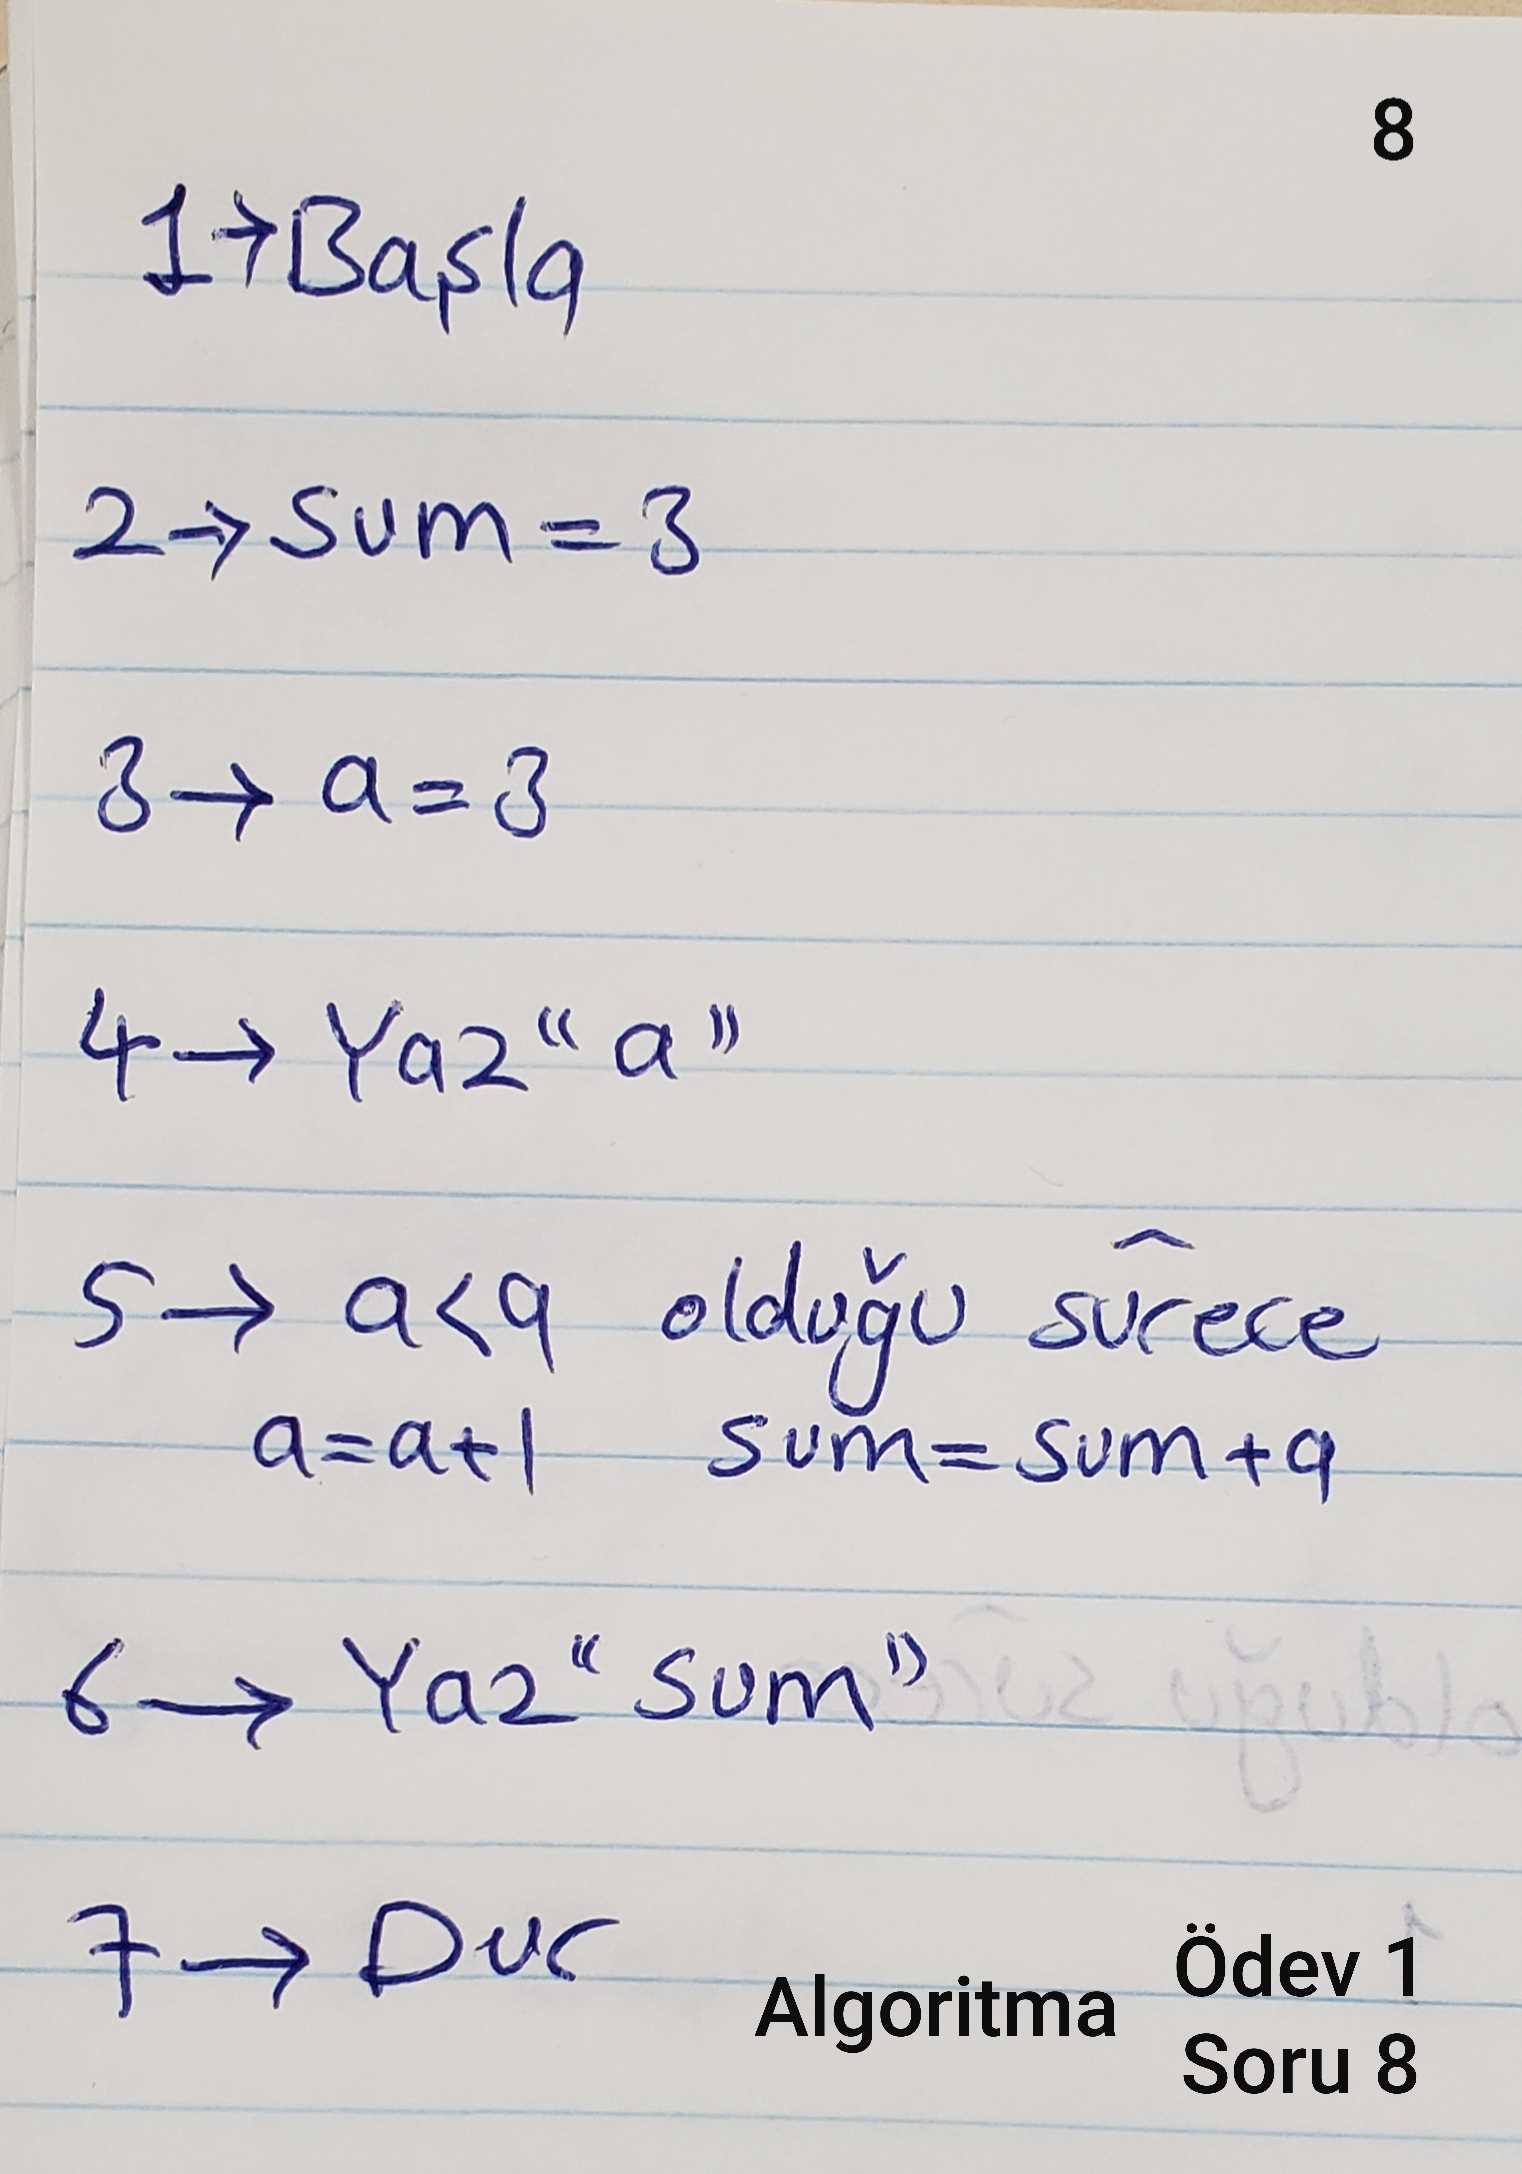 8
1→Başla
2→ sum = 3
3→ a=3
4→ Yaz “a”
5→ a<9 olduğu sûrece
a=a+1 sum=sum+a
6→ Yaz “sum”
7→ Dur
Algoritma
Ödev 1
Soru 8